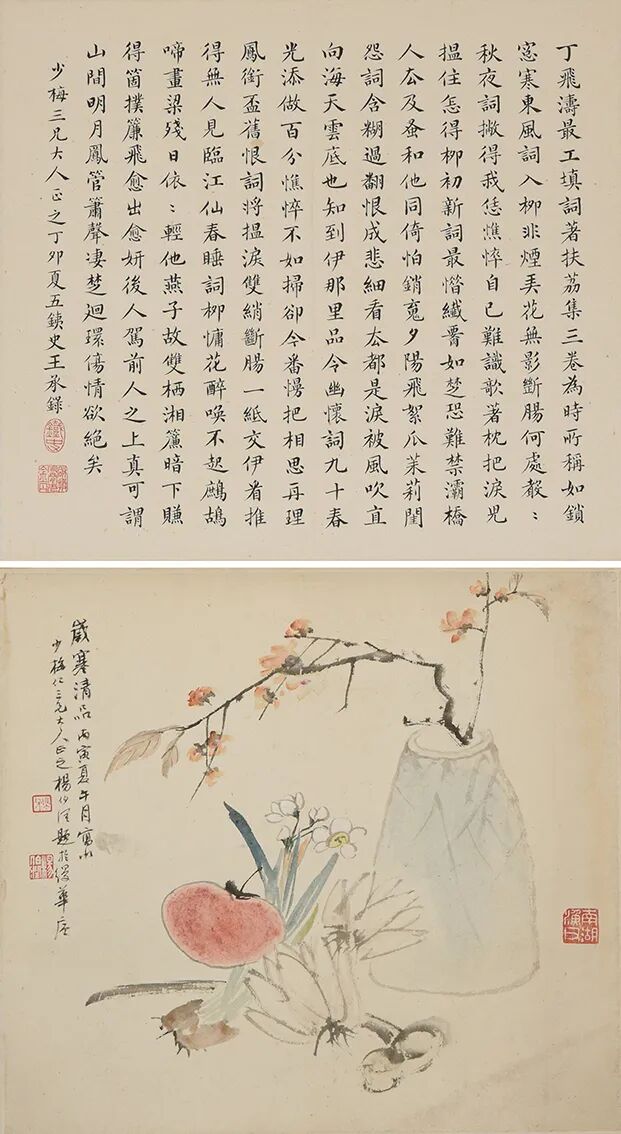 丁飛濤最工填詞著扶荔集三卷為時所稱如鎖
窓寒東風詞入柳非煙弄花無影斷腸何處聲〻
秋夜詞撇得我恁憔悴自己難識歌著枕把淚児
搵住怎得柳初新詞最憯纖罾如楚恐難禁灞橋
人厺及蚤和他同倚怕銷䰟夕陽飛絮爪茉莉閨
怨詞含糊過翻恨成悲細看厺都是淚被風吹直
向海天雲底也知到伊那里品令幽懷詞九十春
光添做百分憔悴不如掃卻今番慢把相思再理
鳳銜盃舊恨詞將搵淚雙綃斷腸一紙交伊看推
得無人見臨江仙春睡詞柳慵花醉喚不起鷓鴣
啼畫梁殘日依〻輕他燕子故雙栖湘簾暗下賺
得箇撲簾飛愈出愈妍後人駕前人之上真可謂
山間明月鳳管簫聲凄楚迴環傷情欲絕矣
少梅三兄大人正之丁卯夏五鐵史王承錄
歲寒清品丙寅夏午月寫
少梅仁三兄大人正之楊伯淫題於
南湖漁父